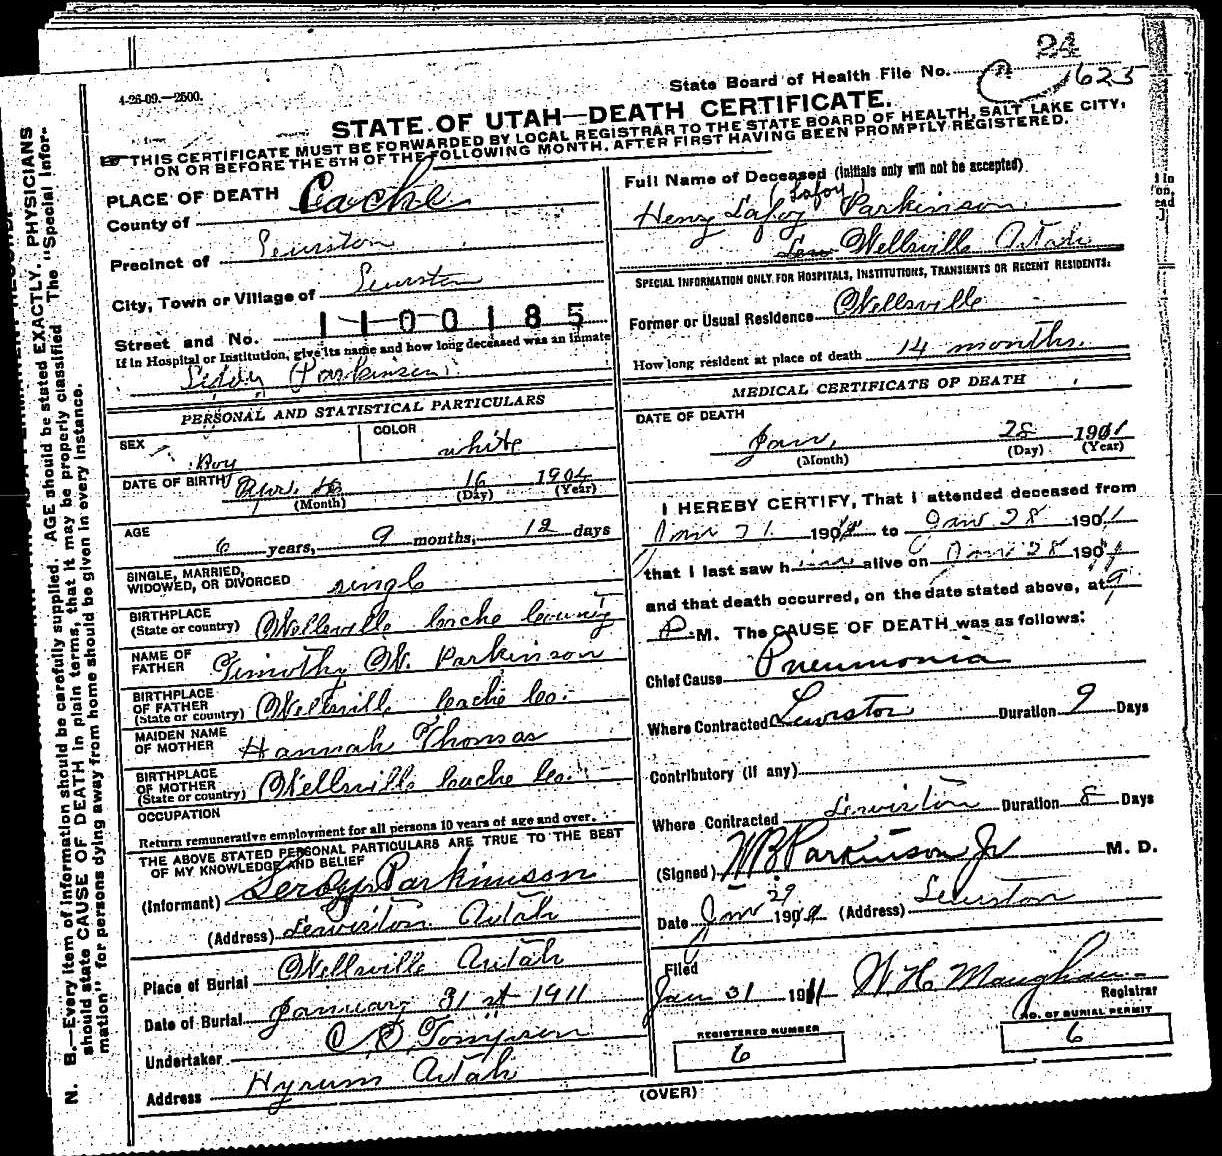 24
State Board of Health File No. C 1625
4-26-09.—2500.
STATE OF UTAH—DEATH CERTIFICATE.
THIS CERTIFICATE MUST BE FORWARDED BY LOCAL REGISTRAR TO THE STATE BOARD OF HEALTH, SALT LAKE CITY,
ON OR BEFORE THE 5TH OF THE FOLLOWING MONTH, AFTER FIRST HAVING BEEN PROMPTLY REGISTERED.
PLACE OF DEATH
County of Cache
Precinct of Lewiston
City, Town or Village of Lewiston
Street and No. 1100185
If in Hospital or Institution, give its name and how long deceased was an inmate
Parkinson
PERSONAL AND STATISTICAL PARTICULARS
SEX Boy COLOR white
DATE OF BIRTH Apr. 16 1904
(Month) (Day) (Year)
AGE 6 years, 9 months, 12 days
SINGLE, MARRIED,
WIDOWED, OR DIVORCED single
BIRTHPLACE
(State or country) Wellsville Cache County
NAME OF
FATHER Timothy W. Parkinson
BIRTHPLACE
OF FATHER
(State or country) Wellsville Cache Co.
MAIDEN NAME
OF MOTHER Hannah Thomas
BIRTHPLACE
OF MOTHER
(State or country) Wellsville Cache Co.
OCCUPATION
Return remunerative employment for all persons 10 years of age and over.
THE ABOVE STATED PERSONAL PARTICULARS ARE TRUE TO THE BEST
OF MY KNOWLEDGE AND BELIEF
(Informant) Leroy Parkinson
(Address) Lewiston Utah
Place of Burial Wellsville Utah
Date of Burial January 31st 1911
Undertaker
Address Hyrum Utah
Full Name of Deceased (initials only will not be accepted)
(Lafoy)
Henry Lafoy Parkinson
Wellsville Utah
SPECIAL INFORMATION ONLY FOR HOSPITALS, INSTITUTIONS, TRANSIENTS OR RECENT RESIDENTS:
Former or Usual Residence Wellsville
How long resident at place of death 14 months.
MEDICAL CERTIFICATE OF DEATH
DATE OF DEATH
Jan. 28 1911
(Month) (Day) (Year)
I HEREBY CERTIFY, That I attended deceased from
Jan 21 1911 to Jan 28 1911
that I last saw him alive on Jan 28 1911
and that death occurred, on the date stated above, at 9
P M. The CAUSE OF DEATH was as follows:
Chief Cause Pneumonia
Where Contracted Lewiston Duration 9 Days
Contributory (if any)
Where Contracted Lewiston Duration 8 Days
(Signed) WB Parkinson Jr M. D.
Date Jan 29 1911 (Address) Lewiston
Filed
Jan 31 1911 W. H. Maughan
Registrar
REGISTERED NUMBER
6
NO. OF BURIAL PERMIT
6
(OVER)
N. B.—Every item of information should be carefully supplied. AGE should be stated EXACTLY. PHYSICIANS
should state CAUSE OF DEATH in plain terms, that it may be properly classified. The "Special Infor-
mation" for persons dying away from home should be given in every instance.